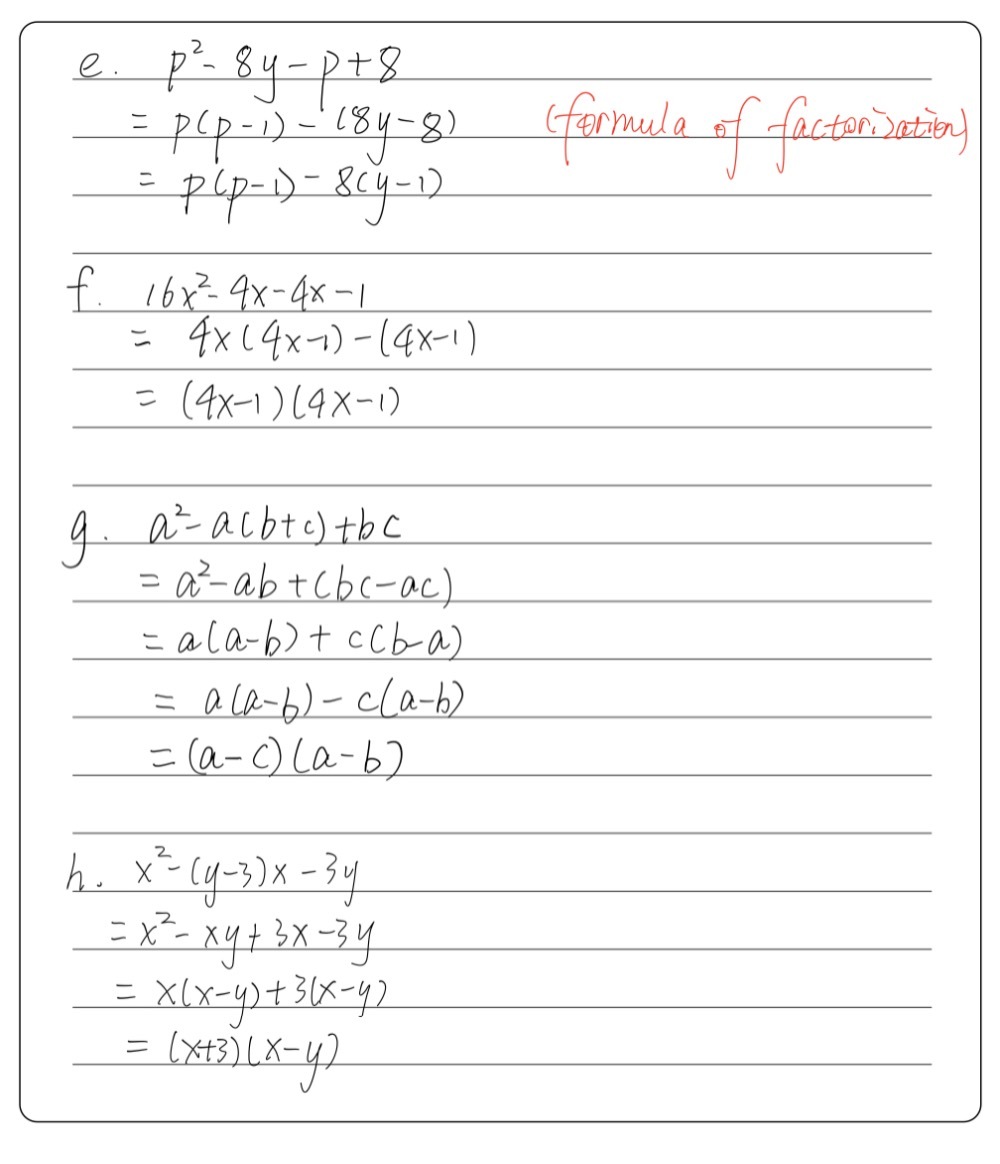 e. p²-8y-p+8
= p(p-1)-(8y-8) (formula of factorization)
= p(p-1)-8(y-1)
f. 16x²-4x-4x-1
= 4x(4x-1)-(4x-1)
= (4x-1)(4x-1)
g. a²-a(b+c)+bc
= a²-ab+(bc-ac)
= a(a-b)+c(b-a)
= a(a-b)-c(a-b)
= (a-c)(a-b)
h. x²-(y-3)x-3y
= x²-xy+3x-3y
= x(x-y)+3(x-y)
= (x+3)(x-y)